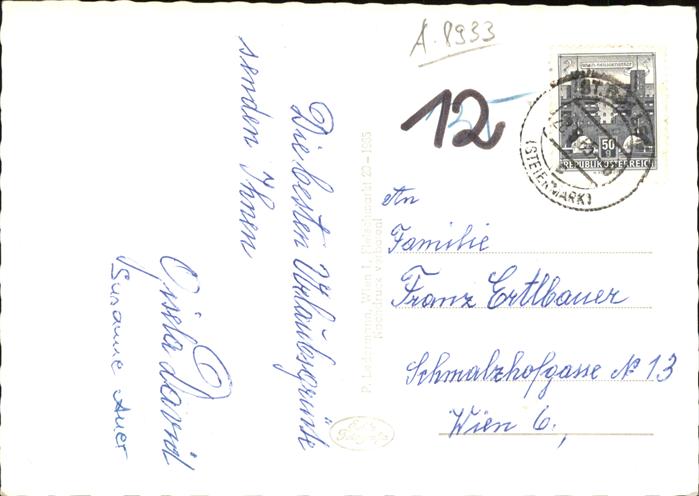 A. 8933
12
50
REPUBLIK ÖSTERREICH
(STEIERMARK)
Die besten Urlaubsgrüße
senden Ihnen
Gisela David
Susanne Auer
P. Ledermann, Wien I., Fleischmarkt 20 – 1965
Nachdruck verboten!
An
Familie
Franz Ertlbauer
Schmalzhofgasse № 13
Wien 6.,